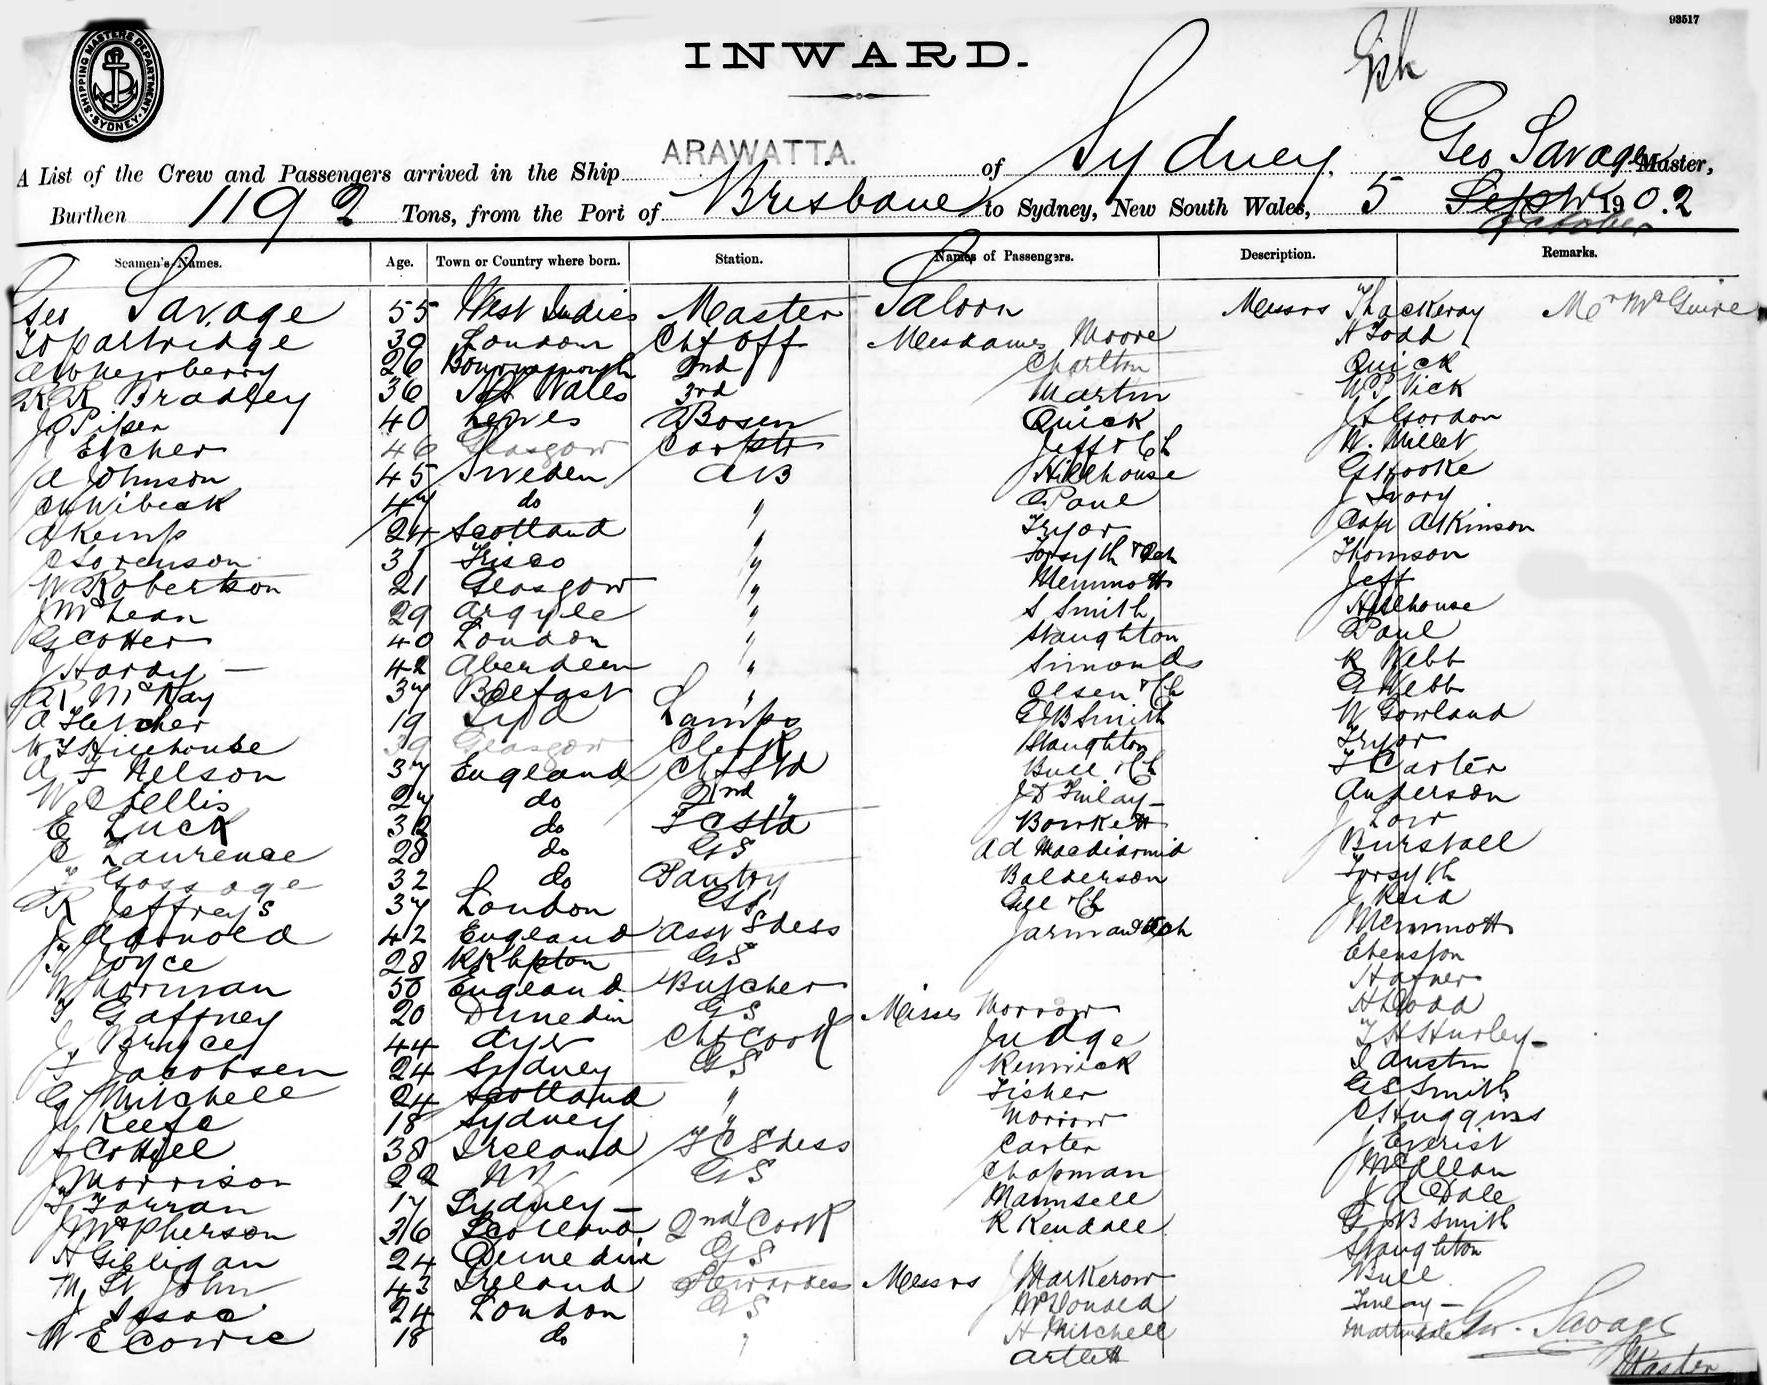 93517
Gph
SHIPPING MASTERS DEPARTMENT SYDNEY
INWARD.
A List of the Crew and Passengers arrived in the Ship ARAWATTA. of Sydney, Geo Savage Master,
Burthen 1192 Tons, from the Port of Brisbane to Sydney, New South Wales, 5 Septr October 190.2
Seamen's Names. Age. Town or Country where born. Station. Names of Passengers. Description. Remarks.
Geo Savage 55 West Indies Master Saloon Messrs Thackeray Mr McGuire
Partridge 39 London Chf Off Mesdames Moore H Todd
Newberry 26 2nd Charlton Quick
R R Bradley 36 Nth Wales 3rd Martin W P Vick
J Piper 40 Bosen Quick J S Gordon
Etcher 46 Glasgow Carptr Jeff & Ch W. Millet
A Johnson 45 Sweden AB Hillhouse G Hooke
Wibeck 47 do " Paul J Ivory
A Kemp 24 Scotland " Tryor Capt Atkinson
C Sorenson 31 Frisco " Forsyth & Ch Thomson
W Robertson 21 Glasgow " Memmott Jeff
J McLean 29 Argyle " S Smith Hillhouse
G Cotter 40 London " Staughton Paul
J Hardy — 42 Aberdeen " Simonds R Webb
R McKay 37 Belfast " Olsen & Ch A Webb
A Fletcher 19 Syd Lamps E J B Smith W Gowland
W T Hillhouse 39 Glasgow Clerk Staughton Tryor
A F Nelson 37 England Chf Std Bull & Ch T Carter
W C Jellis 27 do 2nd " J D Finlay — Anderson
E Luck 32 do F C Std Bowkett J Low
C Laurence 28 do GS A d Macdiarmid Burstall
" Gossage 32 do Pantry Balderson Forsyth
R Jeffreys 37 London GS Gee & Ch J Reid
J Arnold 42 England Asst Stdess Jarman & Ch Memmott
J Joyce 28 GS Ebenston
W Norman 50 England Butcher Hafner
T Gaffney 20 Dunedin GS Misses Morrow H Dodd
J Bruce 44 Ayr Chf Cook Judge T H Hurley —
F Jacobsen 24 Sydney GS Renwick J Austin
G Mitchell 24 Scotland " Fisher G E Smith
J Keefe 18 Sydney " Morrow C Huggins
S Cottell 38 Ireland F C Stdess Carter J Everist
J Morrison 22 NZ GS Chapman McAllan
T Farran 17 Sydney — " Maunsell J A Dale
J McPherson 36 Scotland 2nd Cook R Kendall G J B Smith
H Gilligan 24 Dunedin GS Staughton
M St John 43 Ireland Stewardess Messrs J Markerow Bull
J Isaac 24 London GS McDonald Finlay —
W E Cowie 18 do " H Mitchell Martindale Geo. Savage
Artlett Master